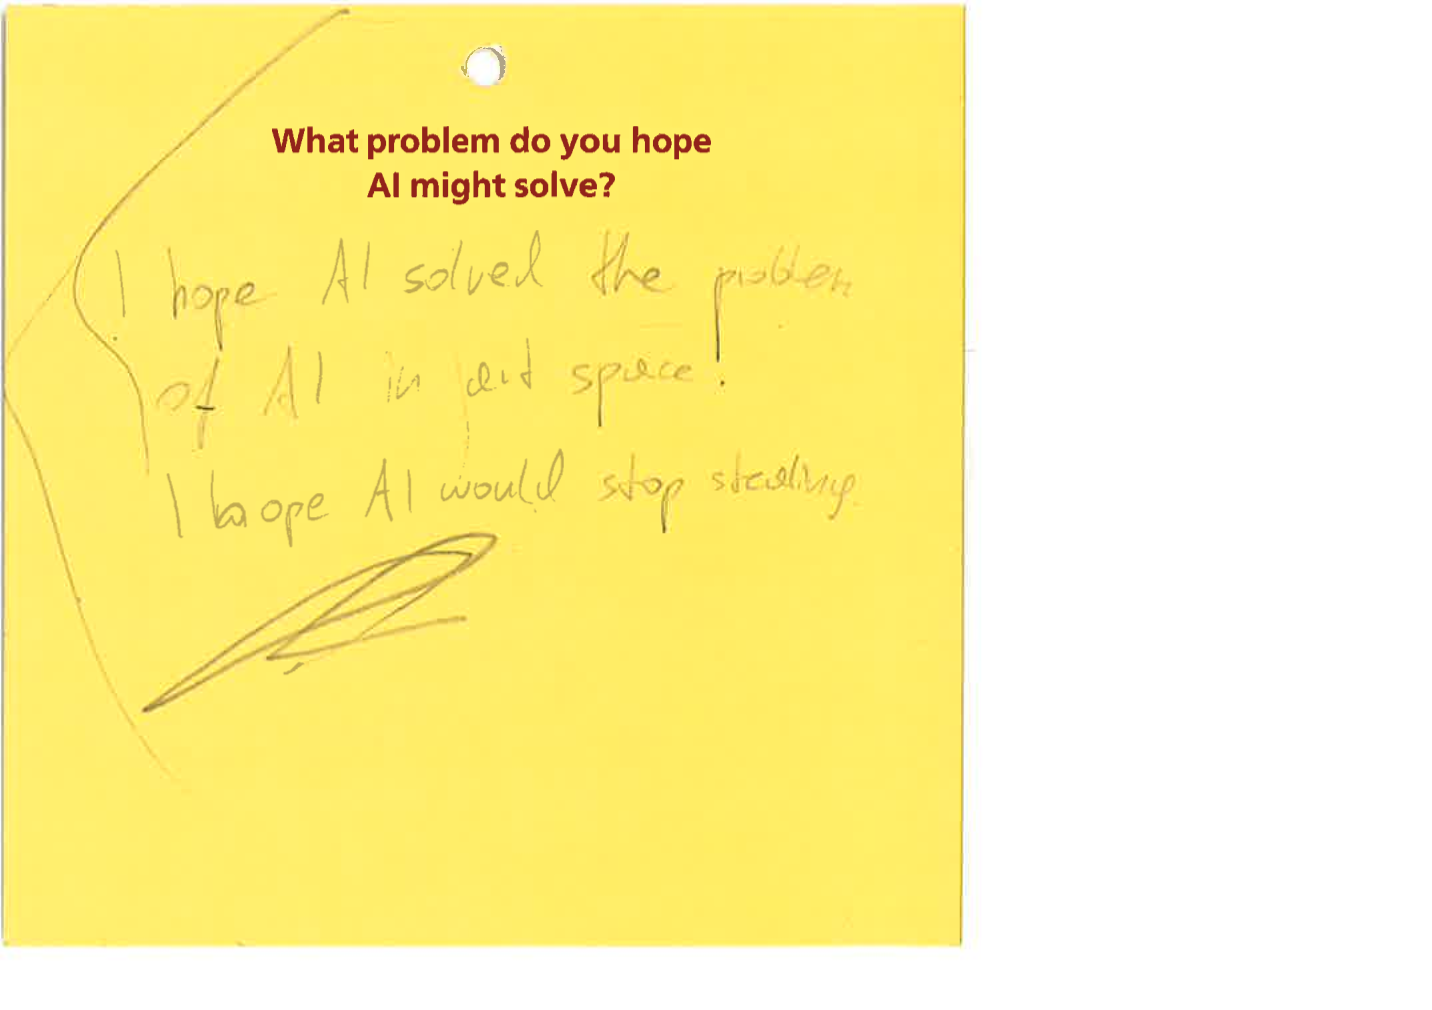 What problem do you hope
AI might solve?
I hope AI solved the problem
of AI in art space!
I hope AI would stop stealing.